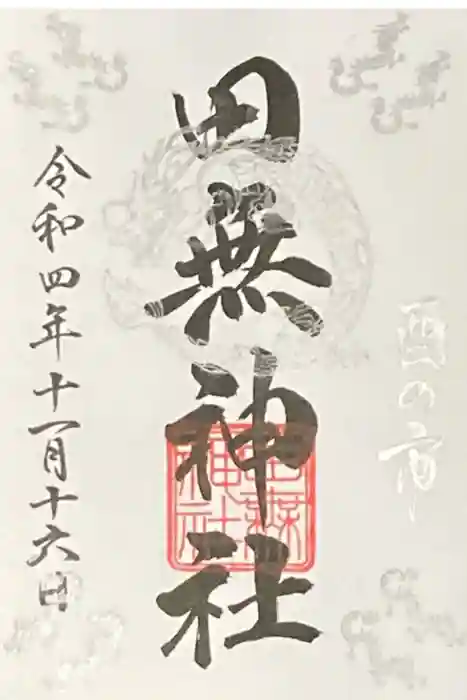 酉の市
田無神社
田無神社
令和四年十一月十六日